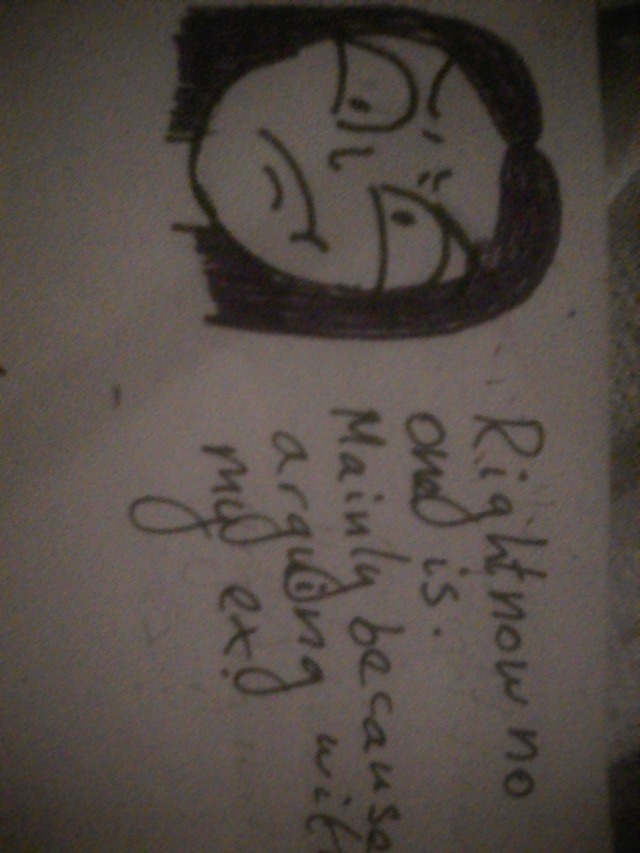 Right now no
one is.
Mainly because
arguing with
my ex.